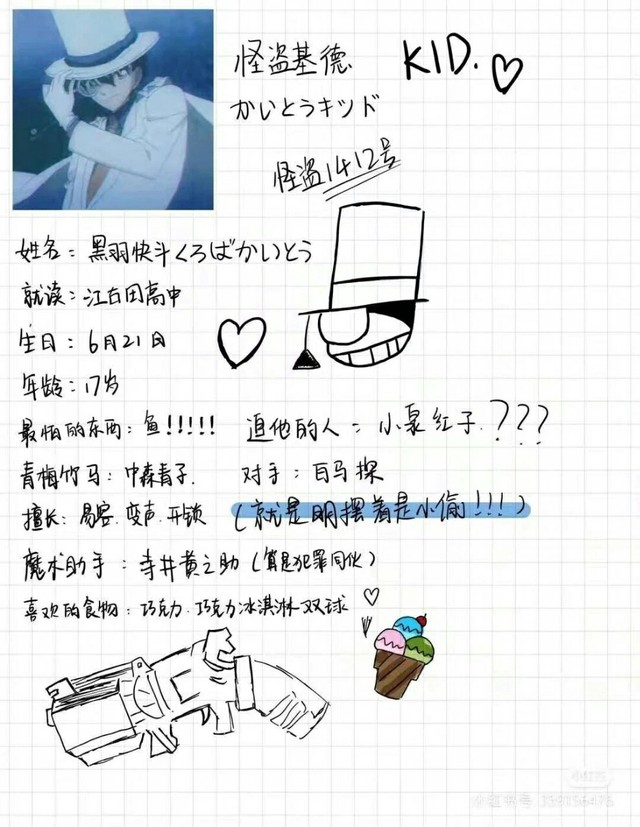 怪盗基德 KID.
かいとうキッド
怪盗1412号
姓名：黑羽快斗くろばかいとう
就读：江古田高中
生日：6月21日
年龄：17岁
最怕的东西：鱼!!!!! 追他的人：小泉红子.???
青梅竹马：中森青子. 对手：白马探
擅长：易容.变声.开锁 (就是明摆着是小偷!!!)
魔术助手：寺井黄之助(算是犯罪同伙)
喜欢的食物：巧克力.巧克力冰淇淋双球
小红书
小红书号